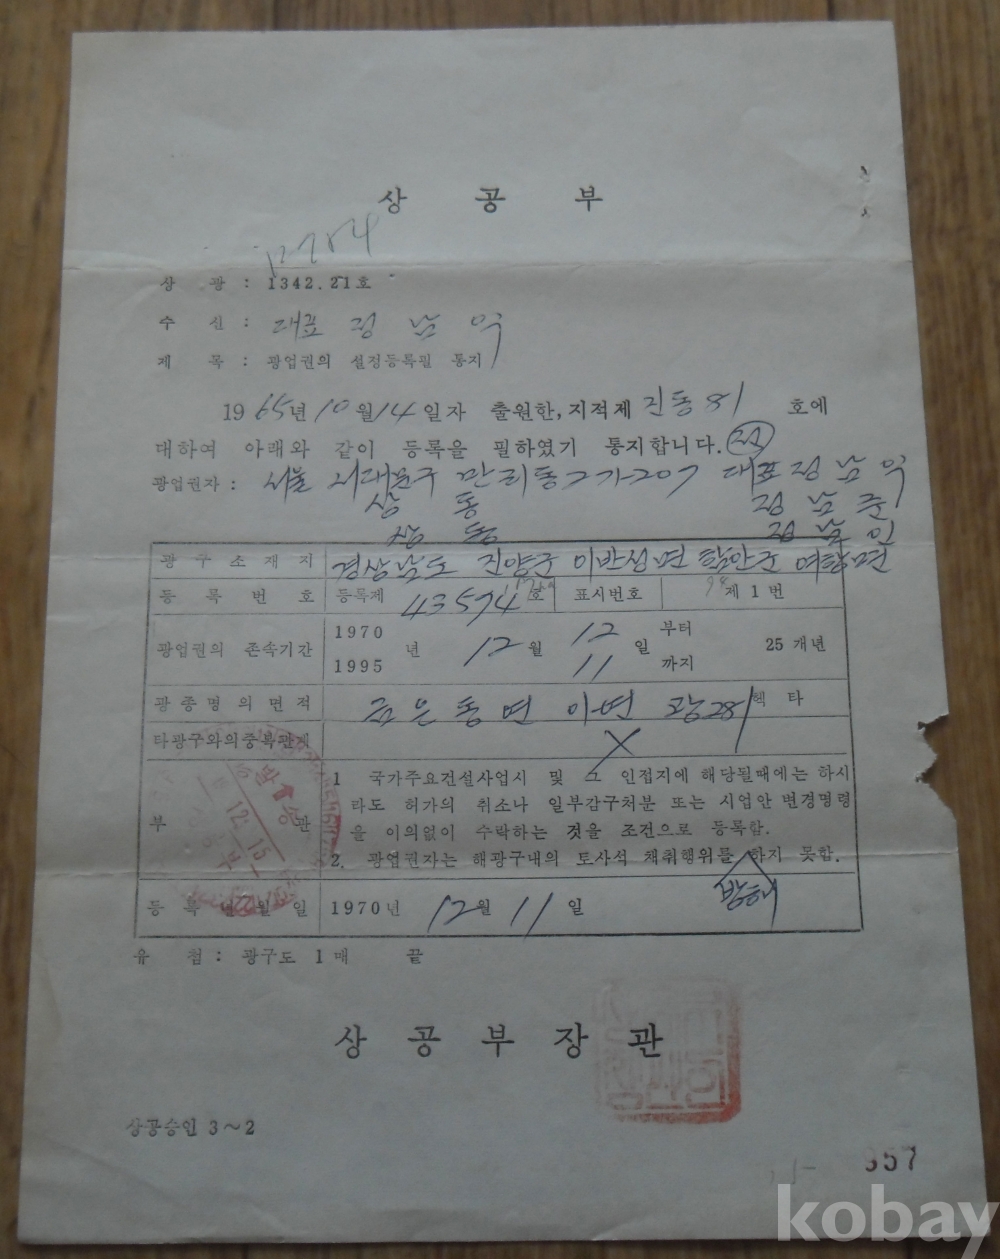 상 공 부
상 광 : 1342.21호
수 신 : 대표 정 남 억
제 목 : 광업권의 설정등록필 통지
1965년 10월 14일자 출원한, 지적제 진동 81 호에
대하여 아래와 같이 등록을 필하였기 통지합니다.
광업권자 : 서울 서대문구 만리동 2가 207 대표 정 남 억
상 동 정 남 준
상 동 정 남 인
광 구 소 재 지 경상남도 진양군 이반성면 함안군 여항면
등 록 번 호 등록제 43594 호 표시번호 제 1 번
광업권의 존속기간 1970 년 12 월 12 일 부터 25 개년
1995 11 까지
광종명의면적 금 은 동 연 아연 광 281 헥 타
타광구와의중복관계 X
부 관 1 국가주요건설사업시 및 그 인접지에 해당될때에는 하시
라도 허가의 취소나 일부감구처분 또는 시업안 변경명령
을 이의없이 수락하는 것을 조건으로 등록함.
2. 광업권자는 해광구내의 토사석 채취행위를 방해 하지 못함.
등 록 년 월 일 1970년 12월 11 일
12. 15
유 첨 : 광구도 1 매 끝
상 공 부 장 관
상공승인 3~2
357
kobay